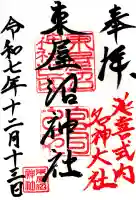 奉拝
延喜式内
名神大社
東屋沼神社
令和七年十二月十三日